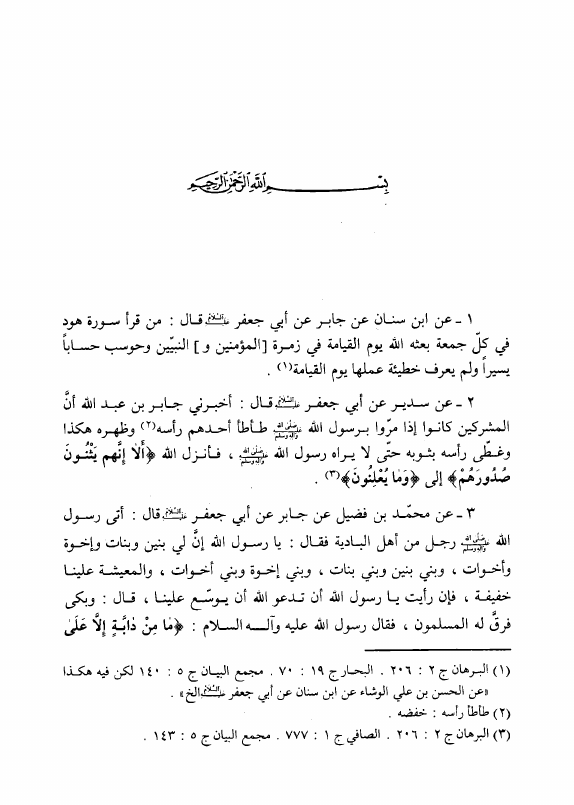 بِسْمِ اللَّهِ الرَّحْمٰنِ الرَّحِيمِ
١ ـ عن ابن سنان عن جابر عن أبي جعفر عليه السلام قال : من قرأ سورة هود
في كلّ جمعة بعثه الله يوم القيامة في زمرة [المؤمنين و] النبيّين وحوسب حساباً
يسيراً ولم يعرف خطيئة عملها يوم القيامة(١) .
٢ ـ عن سدير عن أبي جعفر عليه السلام قال : أخبرني جابر بن عبد الله أنَّ
المشركين كانوا إذا مرّوا برسول الله ﷺ طأطأ أحدهم رأسه(٢) وظهره هكذا
وغطّى رأسه بثوبه حتّى لا يراه رسول الله ﷺ ، فأنزل الله ﴿أَلَا إِنَّهم يَثْنُونَ
صُدُورَهُمْ﴾ إلى ﴿وَمَا يُعْلِنُونَ﴾(٣) .
٣ ـ عن محمّد بن فضيل عن جابر عن أبي جعفر عليه السلام قال : أتى رسول
الله ﷺ رجل من أهل البادية فقال : يا رسول الله إنَّ لي بنين وبنات وإخوة
وأخوات ، وبني بنين وبني بنات ، وبني إخوة وبني أخوات ، والمعيشة علينا
خفيفة ، فإن رأيت يا رسول الله أن تدعو الله أن يوسّع علينا ، قال : وبكى
فرقَّ له المسلمون ، فقال رسول الله عليه وآله السلام : ﴿مَا مِنْ دَابَّةٍ إِلَّا عَلَى
(١) البرهان ج ٢ : ٢٠٦ . البحار ج ١٩ : ٧٠ . مجمع البيان ج ٥ : ١٤٠ لكن فيه هكذا
«عن الحسن بن علي الوشاء عن ابن سنان عن أبي جعفر عليه السلام الخ» .
(٢) طأطأ رأسه : خفضه .
(٣) البرهان ج ٢ : ٢٠٦ . الصافي ج ١ : ٧٧٧ . مجمع البيان ج ٥ : ١٤٣ .